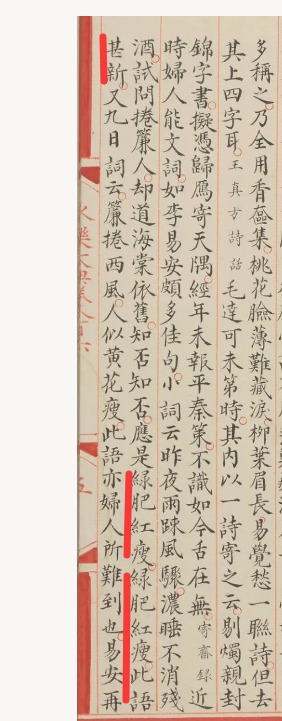 多稱之乃全用香奩集桃花臉薄難藏淚柳葉眉長易覺愁一聯詩但去
其上四字耳王真方詩話毛達可未第時其內以一詩寄之云剔燭親封
錦字書擬憑歸鴈寄天隅經年未報平秦策不識如今舌在無寄齋錄近
時婦人能文詞如李易安頗多佳句小詞云昨夜雨踈風驟濃睡不消殘
酒試問捲簾人却道海棠依舊知否知否應是緑肥紅瘦緑肥紅瘦此語
甚新又九日詞云簾捲西風人似黄花瘦此語亦婦人所難到也易安再
永樂大典卷
五